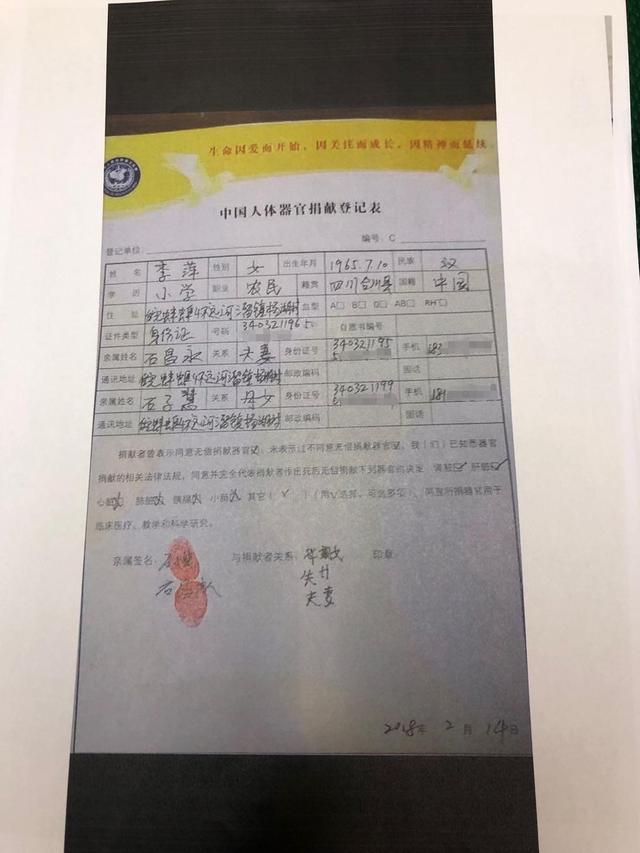 生命因爱而开始，因关注而成长，因精神而延续
中国人体器官捐献登记表
登记单位： 编号：C
姓名 李萍 性别 女 出生年月 1965.7.10 民族 汉
学历 小学 职业 农民 籍贯 四川合川县 国籍 中国
住址 皖蚌埠怀远河溜镇 血型 A□ B□ O□ AB□ RH□
证件类型 身份证 号码 3403211965 自愿书编号
亲属姓名 石昌永 关系 夫妻 身份证号 340321195 手机 183
通讯地址 皖蚌埠怀远河溜镇 邮政编码 固话
亲属姓名 石子慧 关系 母女 身份证号 340321199 手机 181
通讯地址 皖蚌埠怀远河溜镇 邮政编码 固话
捐献者曾表示同意无偿捐献器官☑；未表示过不同意无偿捐献器官☑，我（们）已知悉器官
捐献的相关法律法规，同意并完全代表捐献者作出死后无偿捐献下列器官的决定：肾脏☑ 肝脏
心脏 肺脏 胰腺 小肠 其它（ ）（用√选择，可选多个），所捐器官用于
临床医疗、教学和科学研究。
亲属签名： 与捐献者关系： 印章
石昌永
夫妻
2018年 2 月 14日